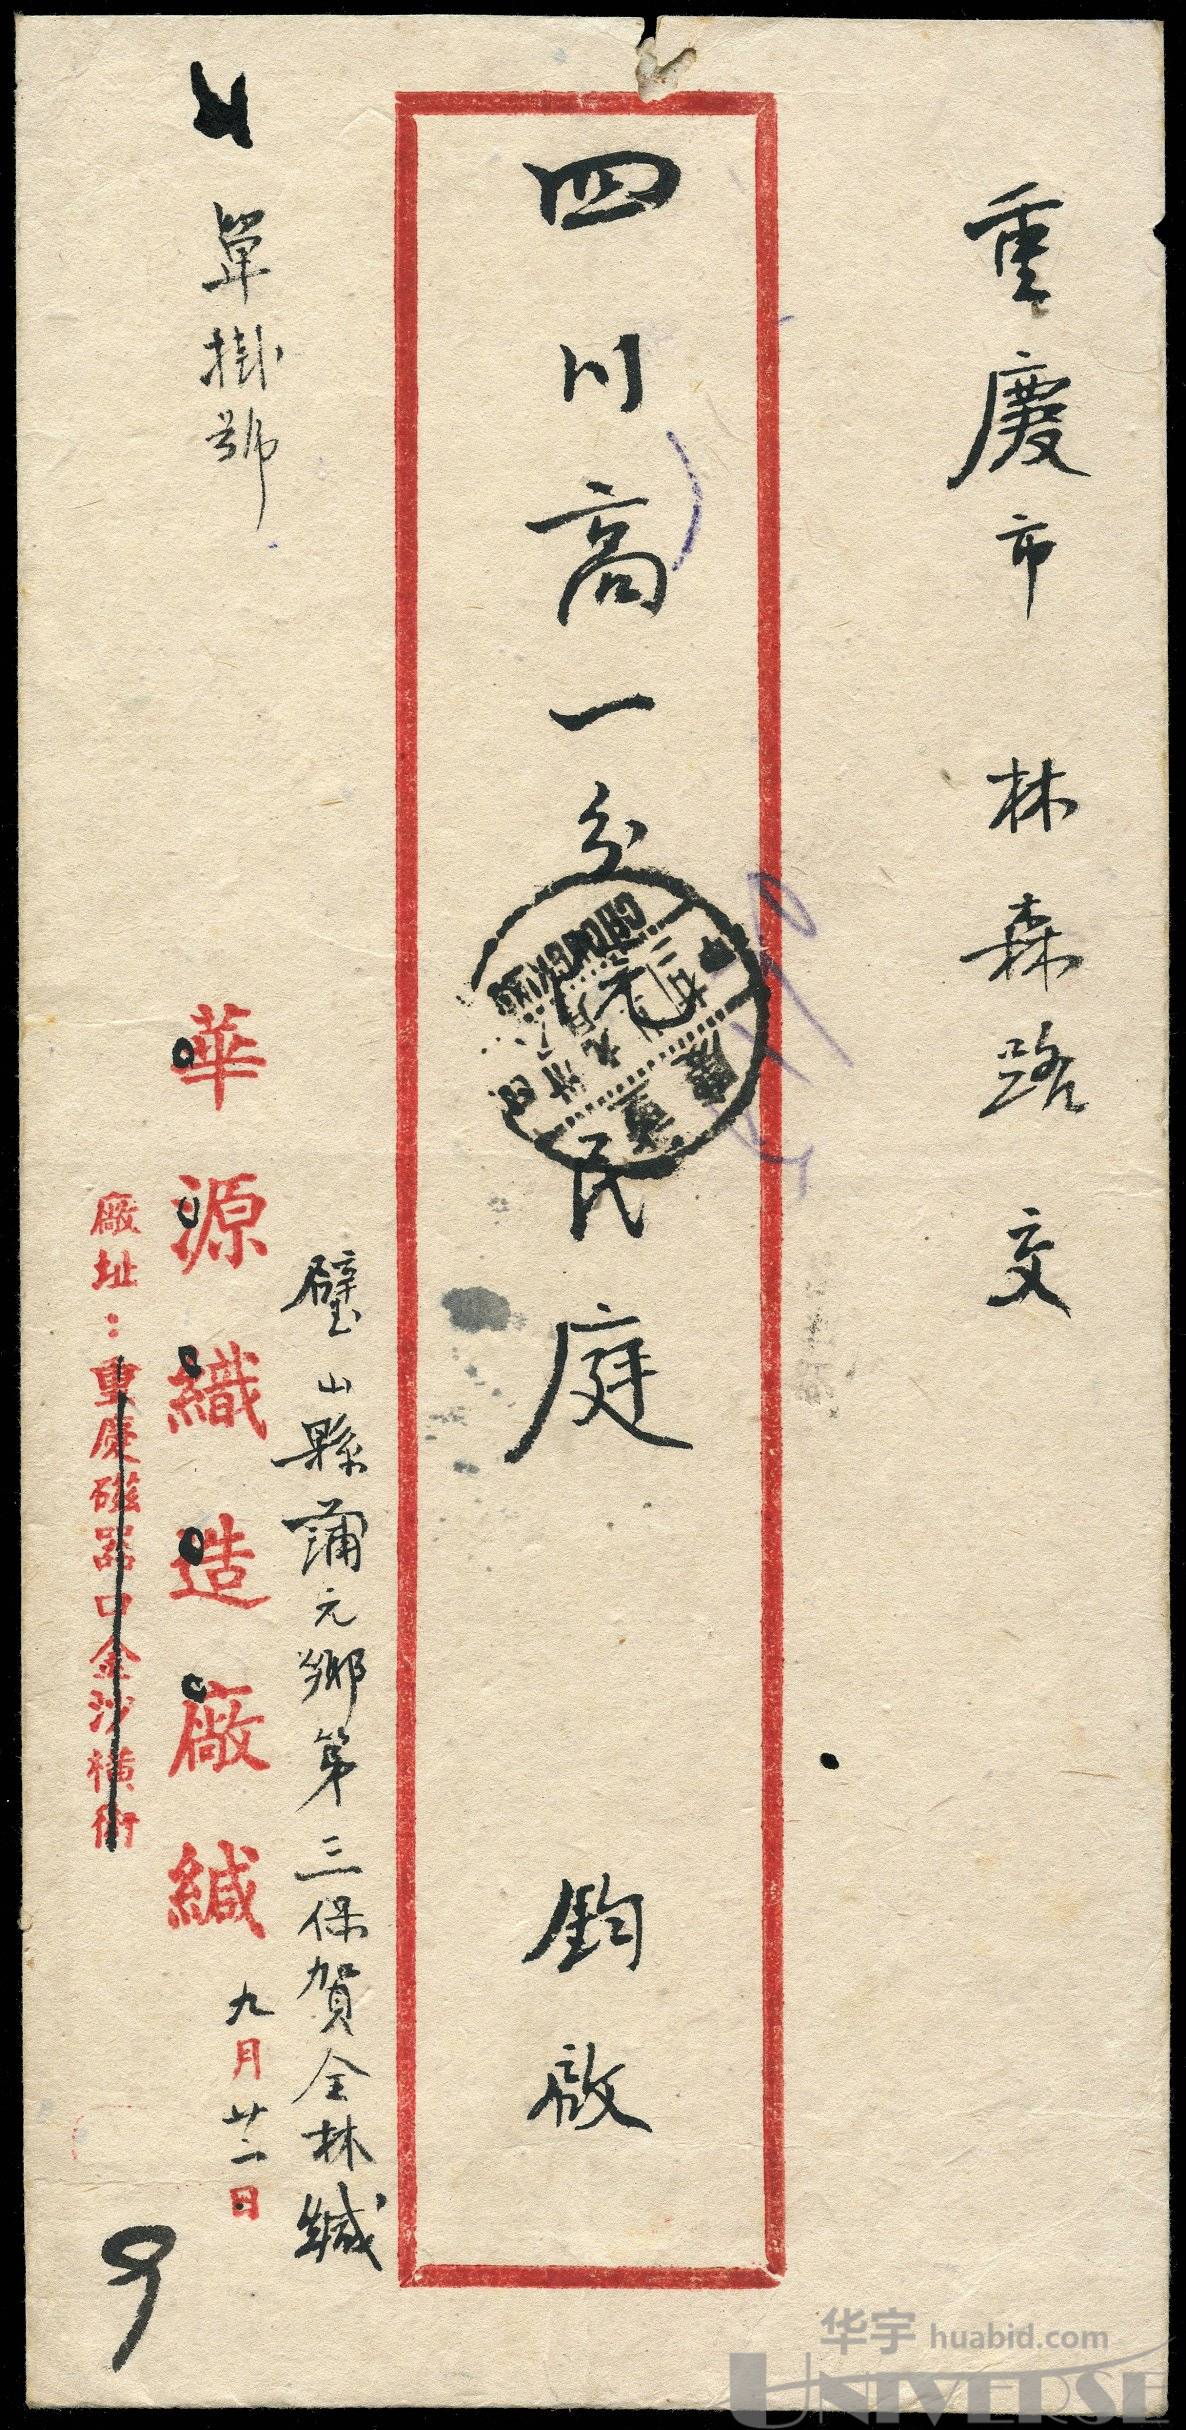 重慶市 林森路 交
四川高一分院民庭 鈞啟
單掛號
璧山縣蒲元鄉第三保賀全林緘
華源織造廠緘
九月廿二日
廠址：重慶磁器口金沙橫街
CHUNGKING
重慶
华宇 huabid.com
UNIVERSE